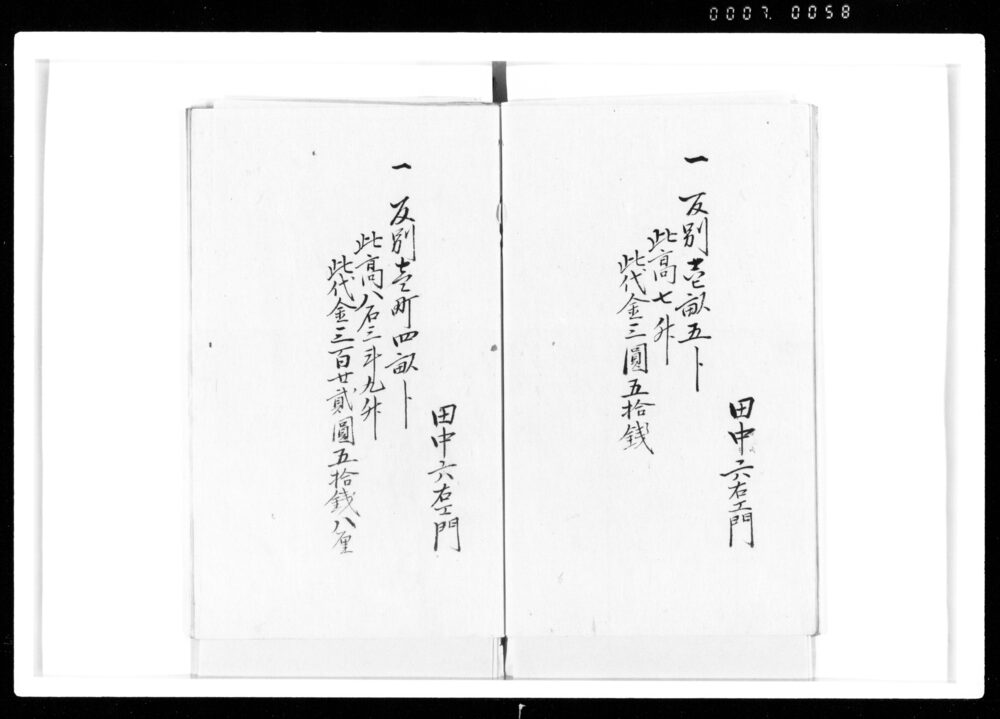 0007. 0058
田中六右エ門
一 反別壱畝五ト
此高七升
此代金三圓五拾錢
田中六右エ門
一 反別壱町四畝ト
此高八石三斗九升
此代金三百廿貳圓五拾錢八厘